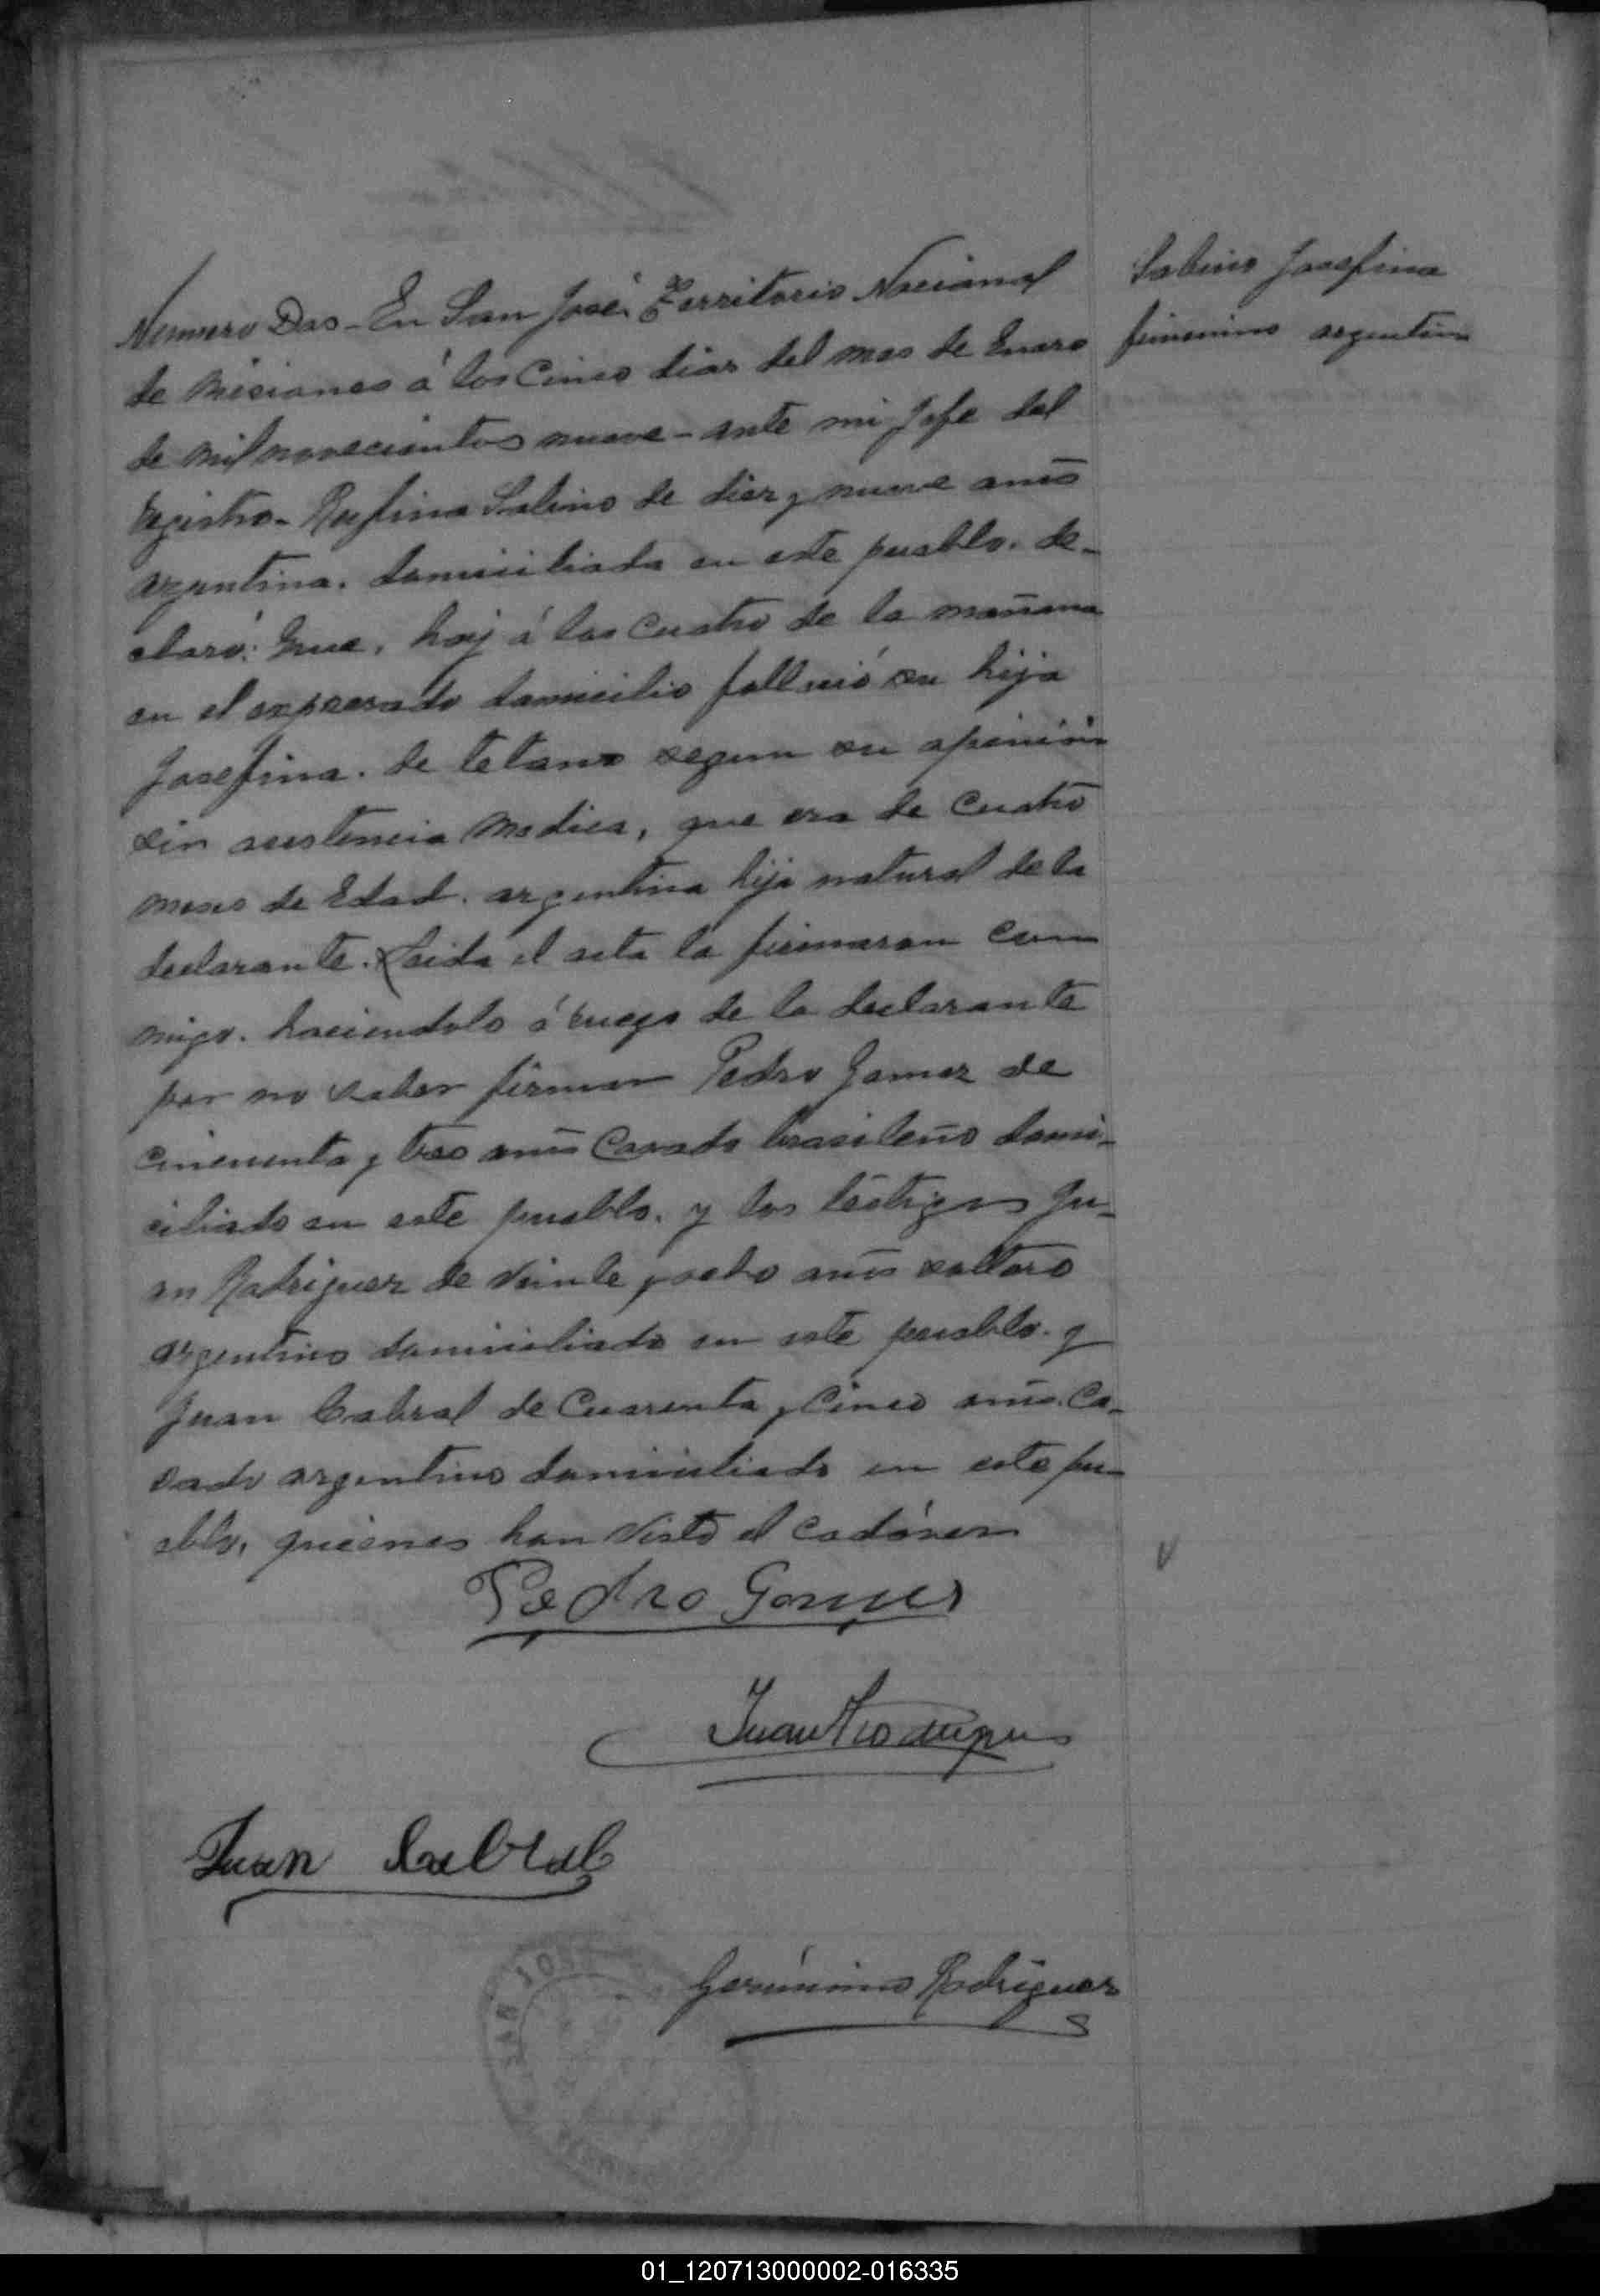 Numero Dos - En San José, Territorio Nacional
de Misiones á los Cinco dias del mes de Enero
de mil novecientos nueve - ante mi Jefe del
registro - Rufina Sabino de diez y nueve años
argentina. domiciliada en este pueblo. de-
claró: Que, hoy á las Cuatro de la mañana
en el expresado domicilio falleció su hija
Josefina. de tetano segun su opinión
sin asistencia medica, que era de Cuatro
meses de Edad. argentina hija natural de la
declarante. Leida el acta la firmaron con
migo. haciendolo á ruego de la declarante
por no saber firmar Pedro Gomez de
cincuenta y tres años Casado brasileño domi-
ciliado en este pueblo. y los testigos Ju-
an Rodriguez de veinte y ocho años soltero
argentino domiciliado en este pueblo. y
Juan Cabral de Cuarenta y Cinco años. Ca-
sado argentino domiciliado en este pu-
eblo, quienes han visto el cadáver
Pedro Gomes
Juan Rodrigues
Juan Cabral
Gerónimo Rodriguez
Sabino Josefina
femenino argentina
SAN JOSE
01_120713000002-016335